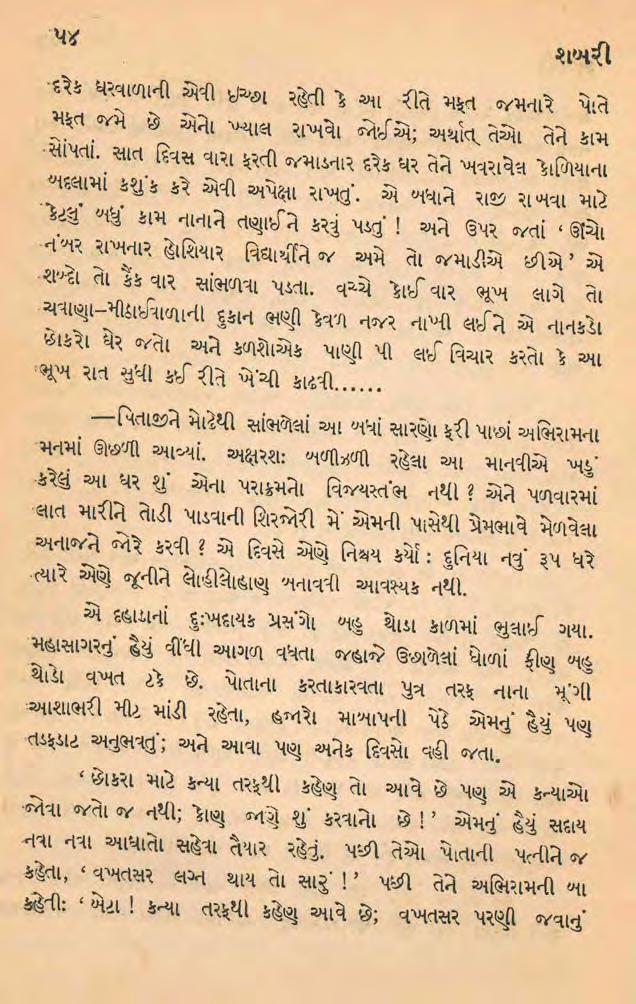 ૫૪
શબરી
દરેક ઘરવાળાની એવી ઇચ્છા રહેતી કે આ રીતે મફત જમનારે પોતે
મફત જમે છે એનો ખ્યાલ રાખવો જોઈએ; અર્થાત્ તેઓ તેને કામ
સોંપતાં. સાત દિવસ વારા ફરતી જમાડનાર દરેક ઘર તેને ખવરાવેલ કોળિયાના
બદલામાં કશુંક કરે એવી અપેક્ષા રાખતું. એ બધાને રાજી રાખવા માટે
કેટલું બધું કામ નાનાને તણાઈને કરવું પડતું ! અને ઉપર જતાં ‘ ઊંચો
નંબર રાખનાર હોશિયાર વિદ્યાર્થીને જ અમે તો જમાડીએ છીએ ’ એ
શબ્દો તો કૈંક વાર સાંભળવા પડતા. વચ્ચે કોઈ વાર ભૂખ લાગે તો
ચવાણા–મીઠાઈવાળાની દુકાન ભણી કેવળ નજર નાખી લઈને એ નાનકડો
છોકરો ઘેર જતો અને કળશોએક પાણી પી લઈ વિચાર કરતો કે આ
ભૂખ રાત સુધી કઈ રીતે ખેંચી કાઢવી......
—પિતાજીને મોઢેથી સાંભળેલાં આ બધાં સારણો ફરી પાછાં અભિરામના
મનમાં ઊછળી આવ્યાં. અક્ષરશઃ બળીઝળી રહેલા આ માનવીએ ખડું
કરેલું આ ઘર શું એના પરાક્રમનો વિજયસ્તંભ નથી ? એને પળવારમાં
લાત મારીને તોડી પાડવાની શિરજોરી મેં એમની પાસેથી પ્રેમભાવે મેળવેલા
અનાજને જોરે કરવી ? એ દિવસે એણે નિશ્ચય કર્યો : દુનિયા નવું રૂપ ધરે
ત્યારે એણે જૂનીને લોહીલોહાણ બનાવવી આવશ્યક નથી.
એ દહાડાનાં દુઃખદાયક પ્રસંગો બહુ થોડા કાળમાં ભુલાઈ ગયા.
મહાસાગરનું હૈયું વીંધી આગળ વધતા જહાજે ઉછાળેલાં ધોળાં ફીણ બહુ
થોડો વખત ટકે છે. પોતાના કરતાકારવતા પુત્ર તરફ નાના મૂંગી
આશાભરી મીટ માંડી રહેતા, હજારો માબાપની પેઠે એમનું હૈયું પણ
તડફડાટ અનુભવતું; અને આવા પણ અનેક દિવસો વહી જતા.
‘ છોકરા માટે કન્યા તરફથી કહેણ તો આવે છે પણ એ કન્યાઓ
જોવા જતો જ નથી; કોણ જાણે શું કરવાનો છે ! ’ એમનું હૈયું સદાય
નવા નવા આઘાતો સહેવા તૈયાર રહેતું. પછી તેઓ પોતાની પત્નીને જ
કહેતા, ‘ વખતસર લગ્ન થાય તો સારું ! ’ પછી તેને અભિરામની બા
કહેતી: ‘ બેટા ! કન્યા તરફથી કહેણ આવે છે; વખતસર પરણી જવાનું